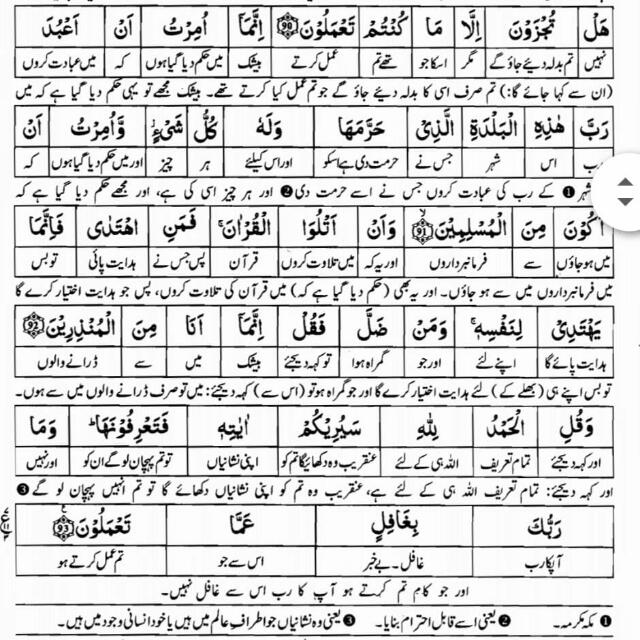 هَلْ تُجْزَوْنَ اِلَّا مَا كُنْتُمْ تَعْمَلُوْنَ ﴿90﴾ اِنَّمَاۤ اُمِرْتُ اَنْ اَعْبُدَ
نہیں تم بدلہ دیئے جاؤ گے مگر اسکا جو تھے تم عمل کرتے بیشک میں حکم دیا گیا ہوں کہ میں عبادت کروں
(ان سے کہا جائے گا:) تم صرف اسی کا بدلہ دیئے جاؤ گے جو تم عمل کیا کرتے تھے۔ بیشک مجھے تو یہی حکم دیا گیا ہے کہ میں
رَبَّ هٰذِهِ الْبَلْدَةِ الَّذِیْ حَرَّمَهَا وَلَهٗ كُلُّ شَیْءٍ وَّاُمِرْتُ اَنْ
رب اس شہر جس نے حرمت دی ہے اسکو اور اس کیلئے ہر چیز اور میں حکم دیا گیا ہوں کہ
شہر ❶ کے رب کی عبادت کروں جس نے اسے حرمت دی ❷ اور ہر چیز اسی کی ہے، اور مجھے حکم دیا گیا ہے کہ
اَكُوْنَ مِنَ الْمُسْلِمِیْنَ ﴿91﴾ وَاَنْ اَتْلُوَا الْقُرْاٰنَ ۚ فَمَنِ اهْتَدٰی فَاِنَّمَا
میں ہو جاؤں سے فرمانبرداروں اور یہ کہ میں تلاوت کروں قرآن پس جس نے ہدایت پائی تو بس
میں فرمانبرداروں میں سے ہو جاؤں۔ اور یہ بھی (حکم دیا گیا ہے کہ) میں قرآن کی تلاوت کروں، پس جو ہدایت اختیار کرے گا
یَهْتَدِیْ لِنَفْسِهٖ ۚ وَمَنْ ضَلَّ فَقُلْ اِنَّمَاۤ اَنَا مِنَ الْمُنْذِرِیْنَ ﴿92﴾
ہدایت پائے گا اپنے لئے اور جو گمراہ ہوا تو کہہ دیجئے بیشک میں سے ڈرانے والوں
تو بس اپنے ہی (بھلے کے) لئے ہدایت اختیار کرے گا اور جو گمراہ ہو تو (اس سے) کہہ دیجئے: میں تو صرف ڈرانے والوں میں سے ہوں۔
وَقُلِ الْحَمْدُ لِلّٰهِ سَیُرِیْكُمْ اٰیٰتِهٖ فَتَعْرِفُوْنَهَا ؕ وَمَا
اور کہہ دیجئے تمام تعریف اللہ ہی کے لئے عنقریب وہ دکھائیگا تم کو اپنی نشانیاں تو تم پہچان لو گے ان کو اور نہیں
اور کہہ دیجئے: تمام تعریف اللہ ہی کے لئے ہے، عنقریب وہ تم کو اپنی نشانیاں دکھائے گا تو تم انہیں پہچان لو گے ❸
رَبُّكَ بِغَافِلٍ عَمَّا تَعْمَلُوْنَ ﴿93﴾
آپکا رب غافل۔ بے خبر اس سے جو تم عمل کرتے ہو
اور جو کام تم کرتے ہو آپ کا رب اس سے غافل نہیں۔
❶ مکہ مکرمہ۔ ❷ یعنی اسے قابل احترام بنایا۔ ❸ یعنی وہ نشانیاں جو اطراف عالم میں ہیں یا خود انسانی وجود میں ہیں۔